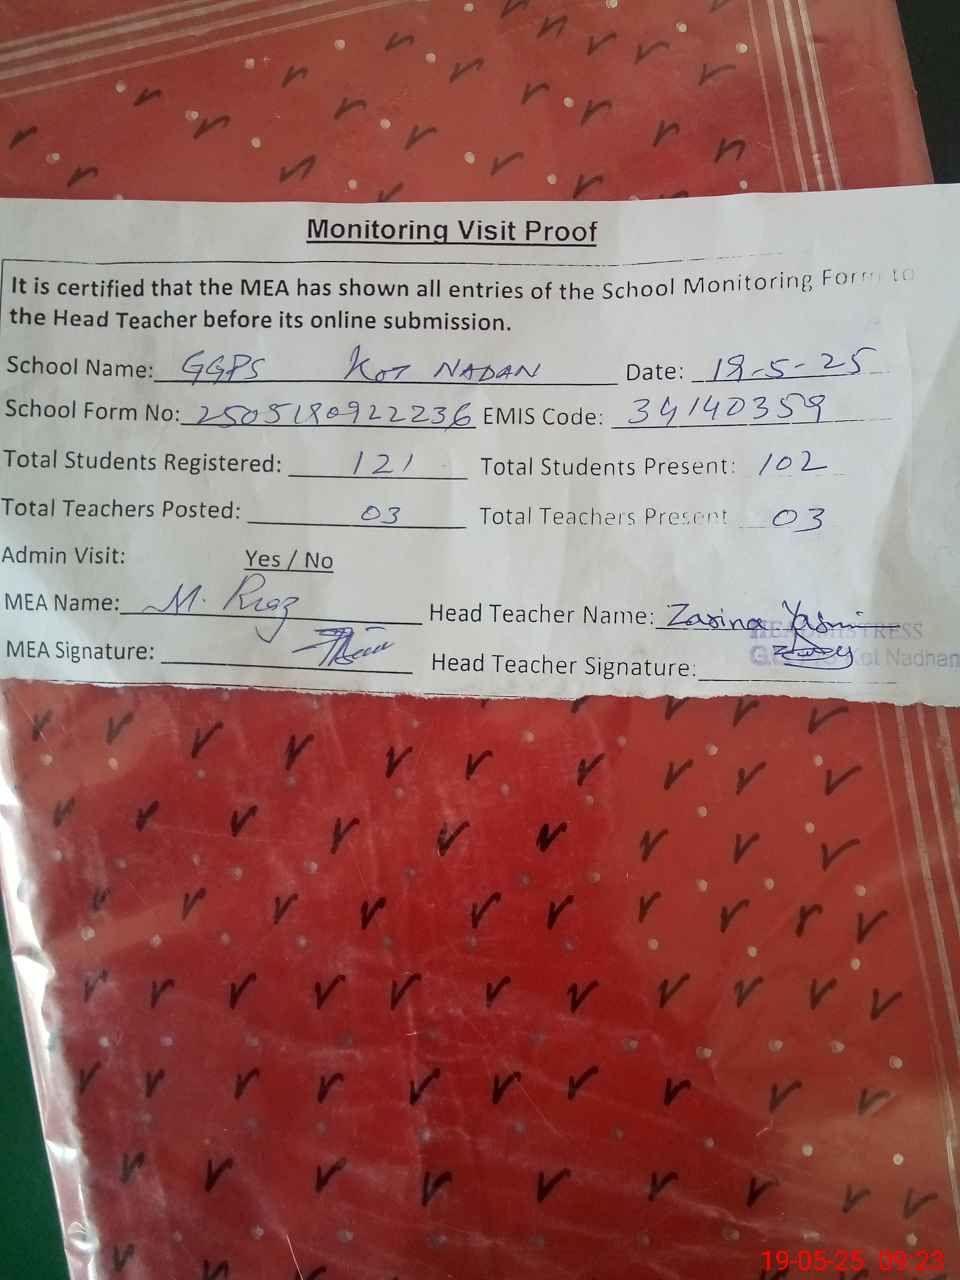 Monitoring Visit Proof
It is certified that the MEA has shown all entries of the School Monitoring Form to
the Head Teacher before its online submission.
School Name: GGPS Kot NADAN Date: 19-5-25
School Form No: 2505190922236 EMIS Code: 34140359
Total Students Registered: 121 Total Students Present: 102
Total Teachers Posted: 03 Total Teachers Present 03
Admin Visit: Yes / No
MEA Name: M. Riaz Head Teacher Name: Zarina Yasmin
HEADMISTRESS
MEA Signature: Head Teacher Signature:
Kot Nadhan
19-05-25 09:23